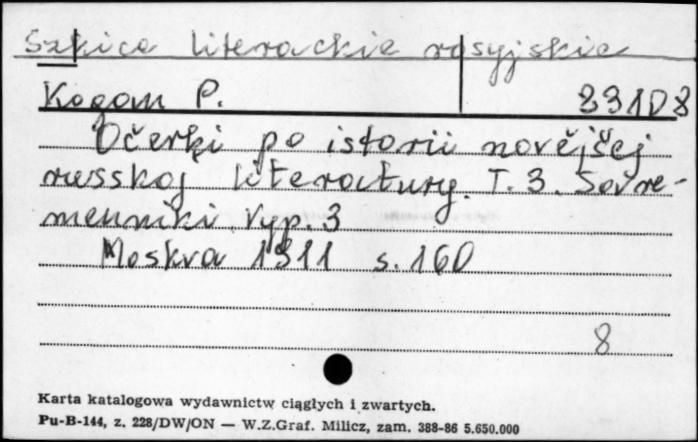 Szkice literackie rosyjskie
Kogan P. 83108
Očerki po istorii novějšej
russkoj literatury. T. 3. Sovre-
menniki. Vyp. 3
Moskva 1911 s. 160
8
Karta katalogowa wydawnictw ciągłych i zwartych.
Pu-B-144, z. 228/DW/ON — W.Z.Graf. Milicz, zam. 388-86 5.650.000